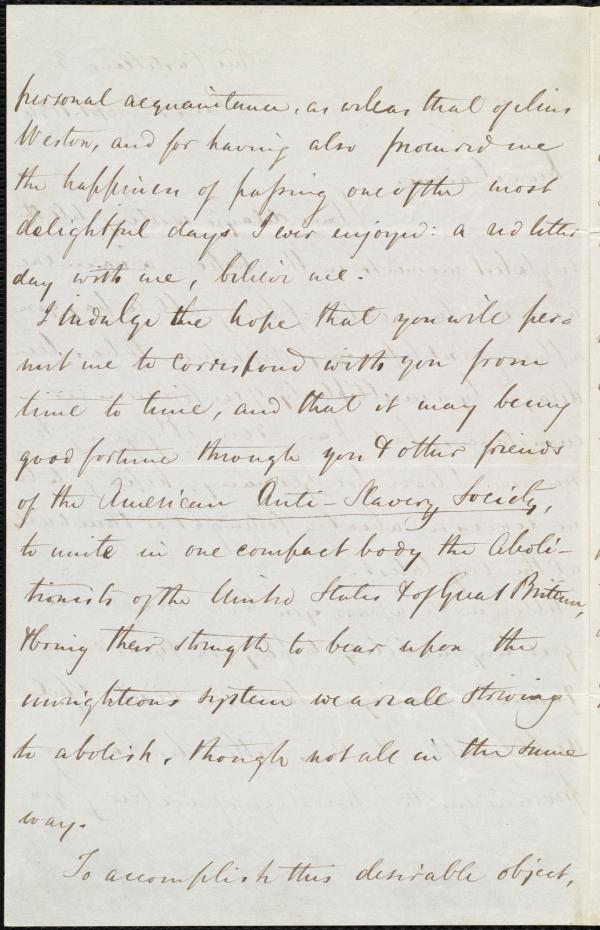 personal acquaintance, as well as that of Miss
Weston, and for having also procured me
the happiness of passing one of the most
delightful days I ever enjoyed: a red letter
day with me, believe me.
I indulge the hope that you will per=
mit me to correspond with you from
time to time, and that it may be my
good fortune through you & other friends
of the American Anti-Slavery Society,
to unite in one compact body the Aboli-
tionists of the United States & of Great Britain,
& bring their strength to bear upon the
unrighteous system we are all striving
to abolish, though not all in the same
way.
To accomplish this desirable object,